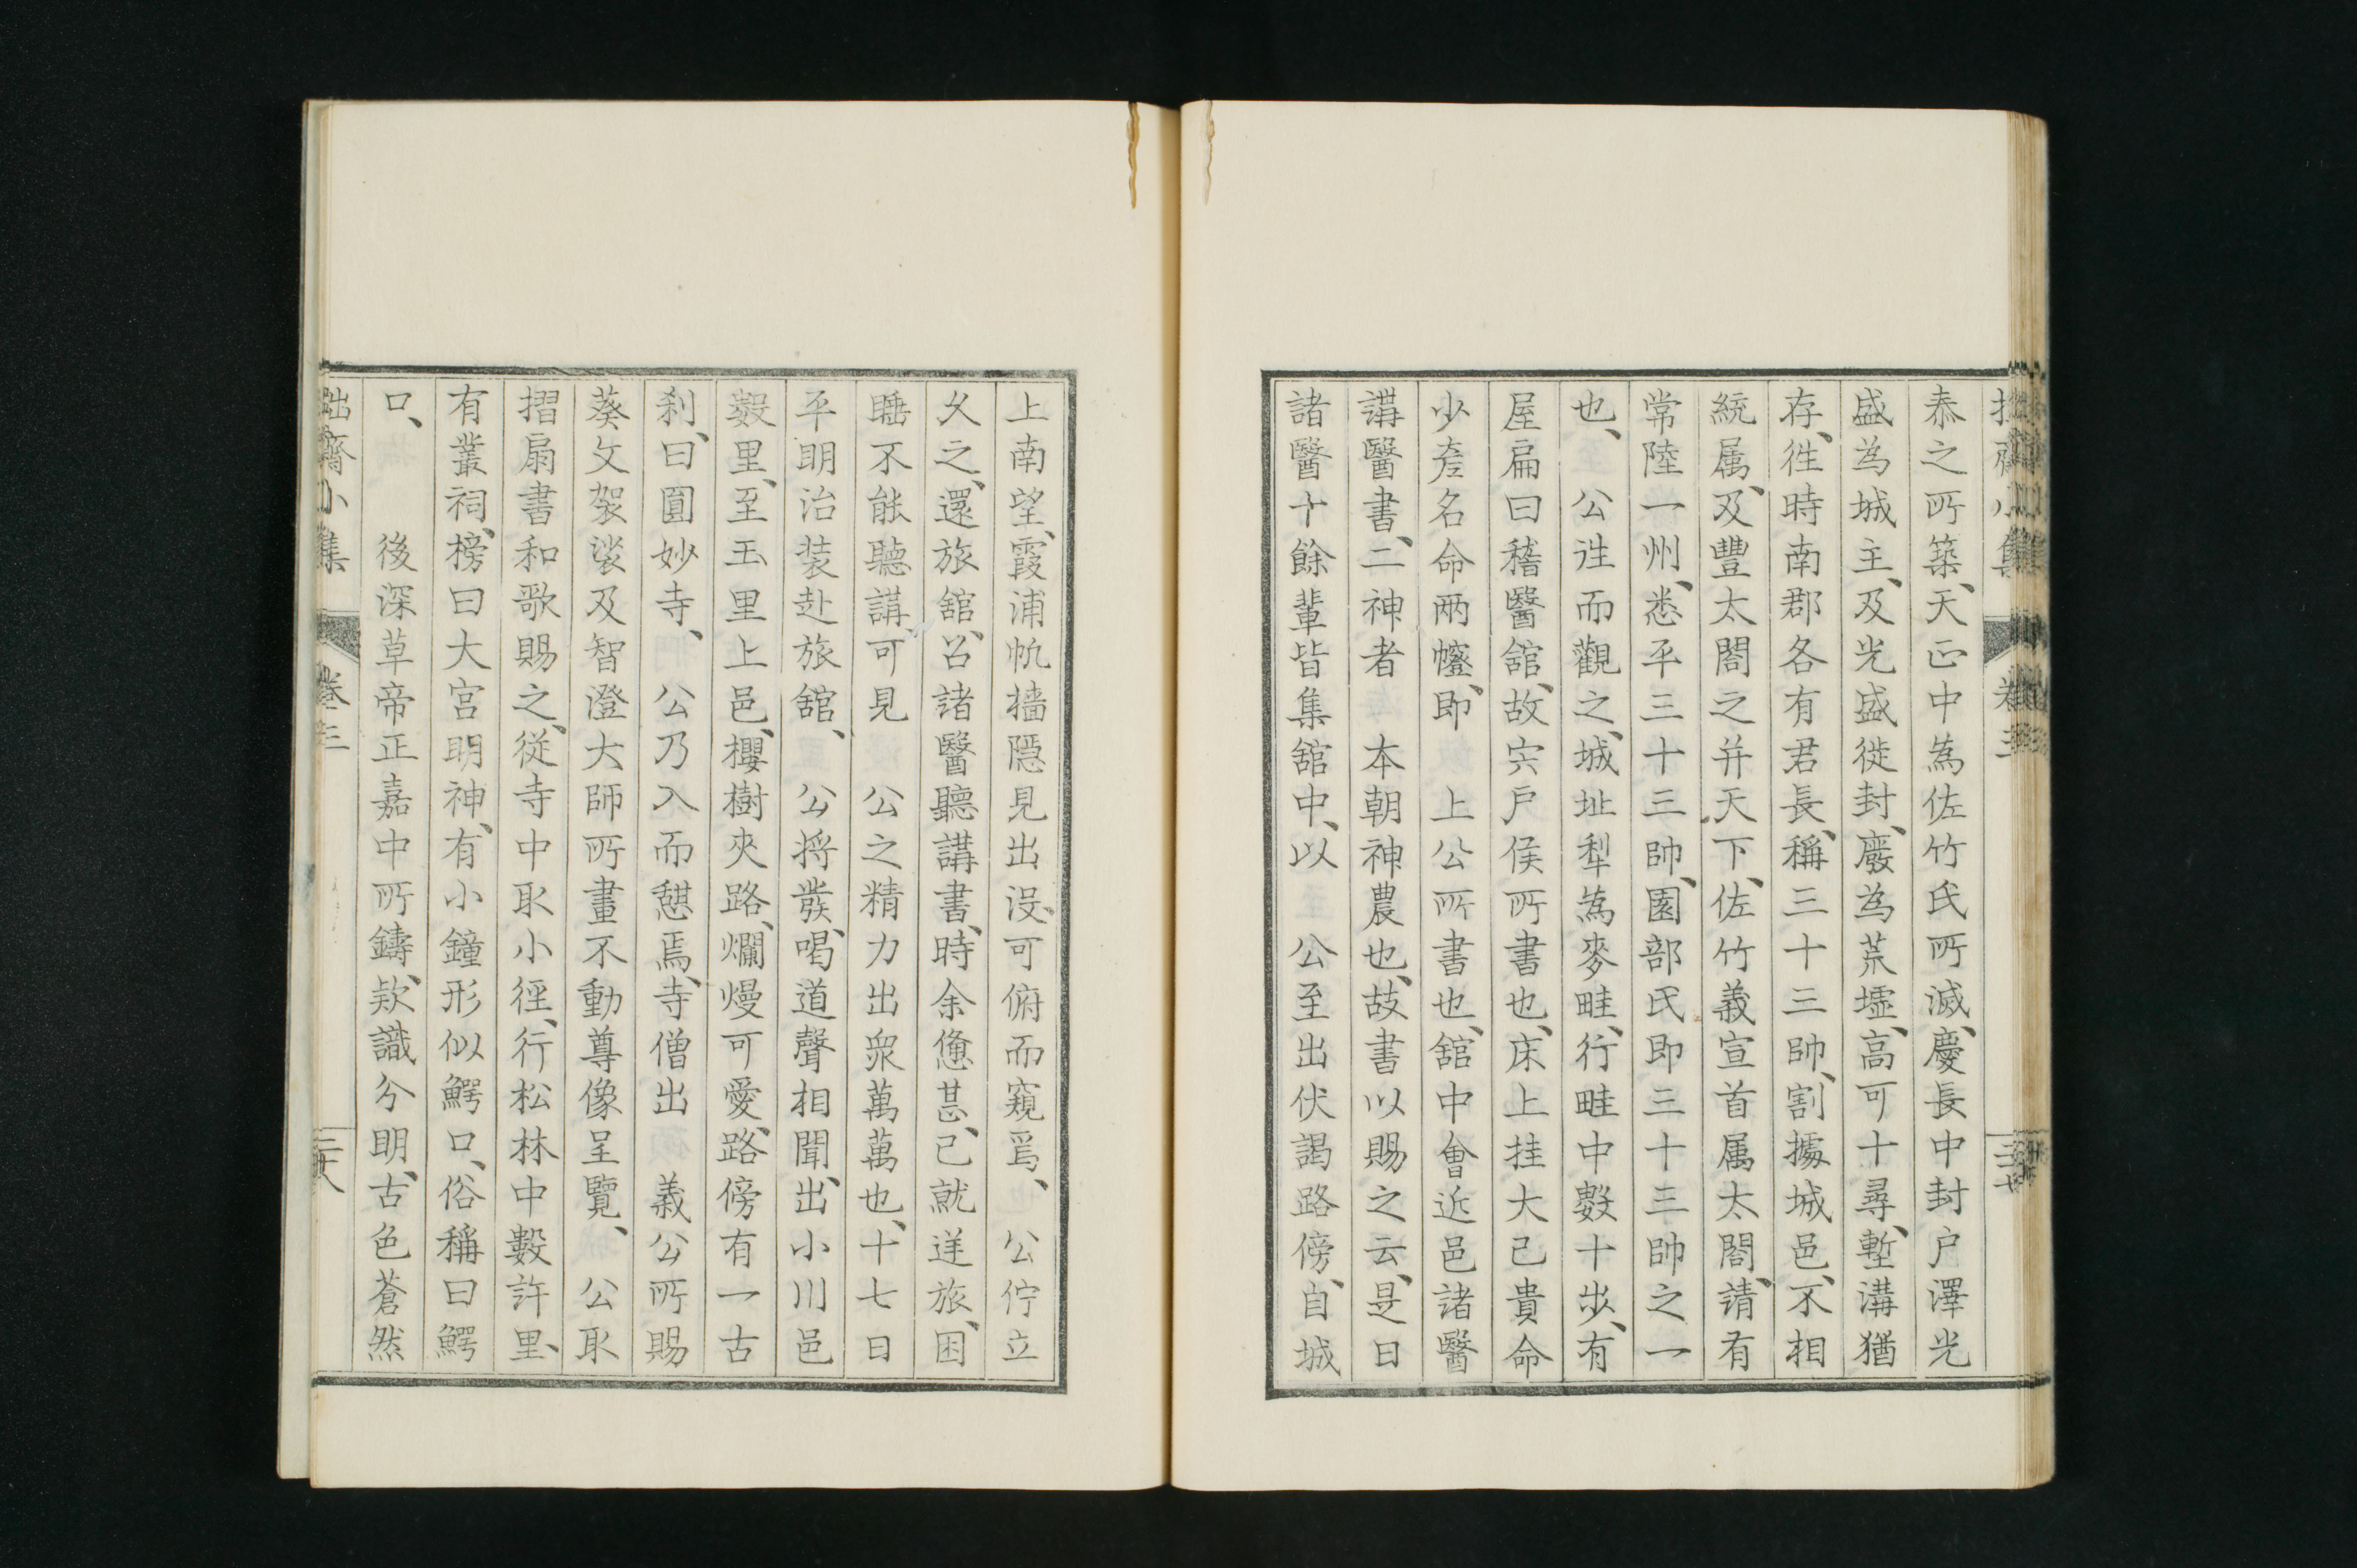 拙齋小集 卷三 三十七
泰之所築、天正中為佐竹氏所滅、慶長中封戶澤光
盛為城主、及光盛徙封、廢為荒墟、高可十尋、塹溝猶
存、徃時南郡各有君長、稱三十三帥、割據城邑、不相
統属、及豐太閤之并天下、佐竹義宣首属太閤、請有
常陸一州、悉平三十三帥、園部氏即三十三帥之一
也、 公徃而觀之、城址犁為麥畦、行畦中數十步、有
屋扁曰稽醫舘、故宍戶侯所書也、床上挂大己貴命
少彥名命兩幢、即 上公所書也、舘中會近邑諸醫
講醫書、二神者 本朝神農也、故書以賜之云、是日
諸醫十餘輩皆集舘中、以 公至出伏謁路傍、自城
上南望、霞浦帆檣隱見出沒、可俯而窺焉、 公佇立
久之、還旅舘、召諸醫聽講書、時余憊甚、已就逆旅、困
睡不能聽講、可見 公之精力出衆萬萬也、十七日
平明治装赴旅舘、 公將發、喝道聲相聞、出小川邑
數里、至玉里上邑、櫻樹夾路、爛熳可愛、路傍有一古
刹、曰圓妙寺、 公乃入而憩焉、寺僧出 義公所賜
葵文袈裟及智澄大師所畫不動尊像呈覽、 公取
摺扇書和歌賜之、從寺中取小徑、行松林中數許里、
有叢祠、榜曰大宮明神、有小鐘形似鰐口、俗稱曰鰐
口、 後深草帝正嘉中所鑄、款識分明、古色蒼然
拙齋小集 卷三 三十八